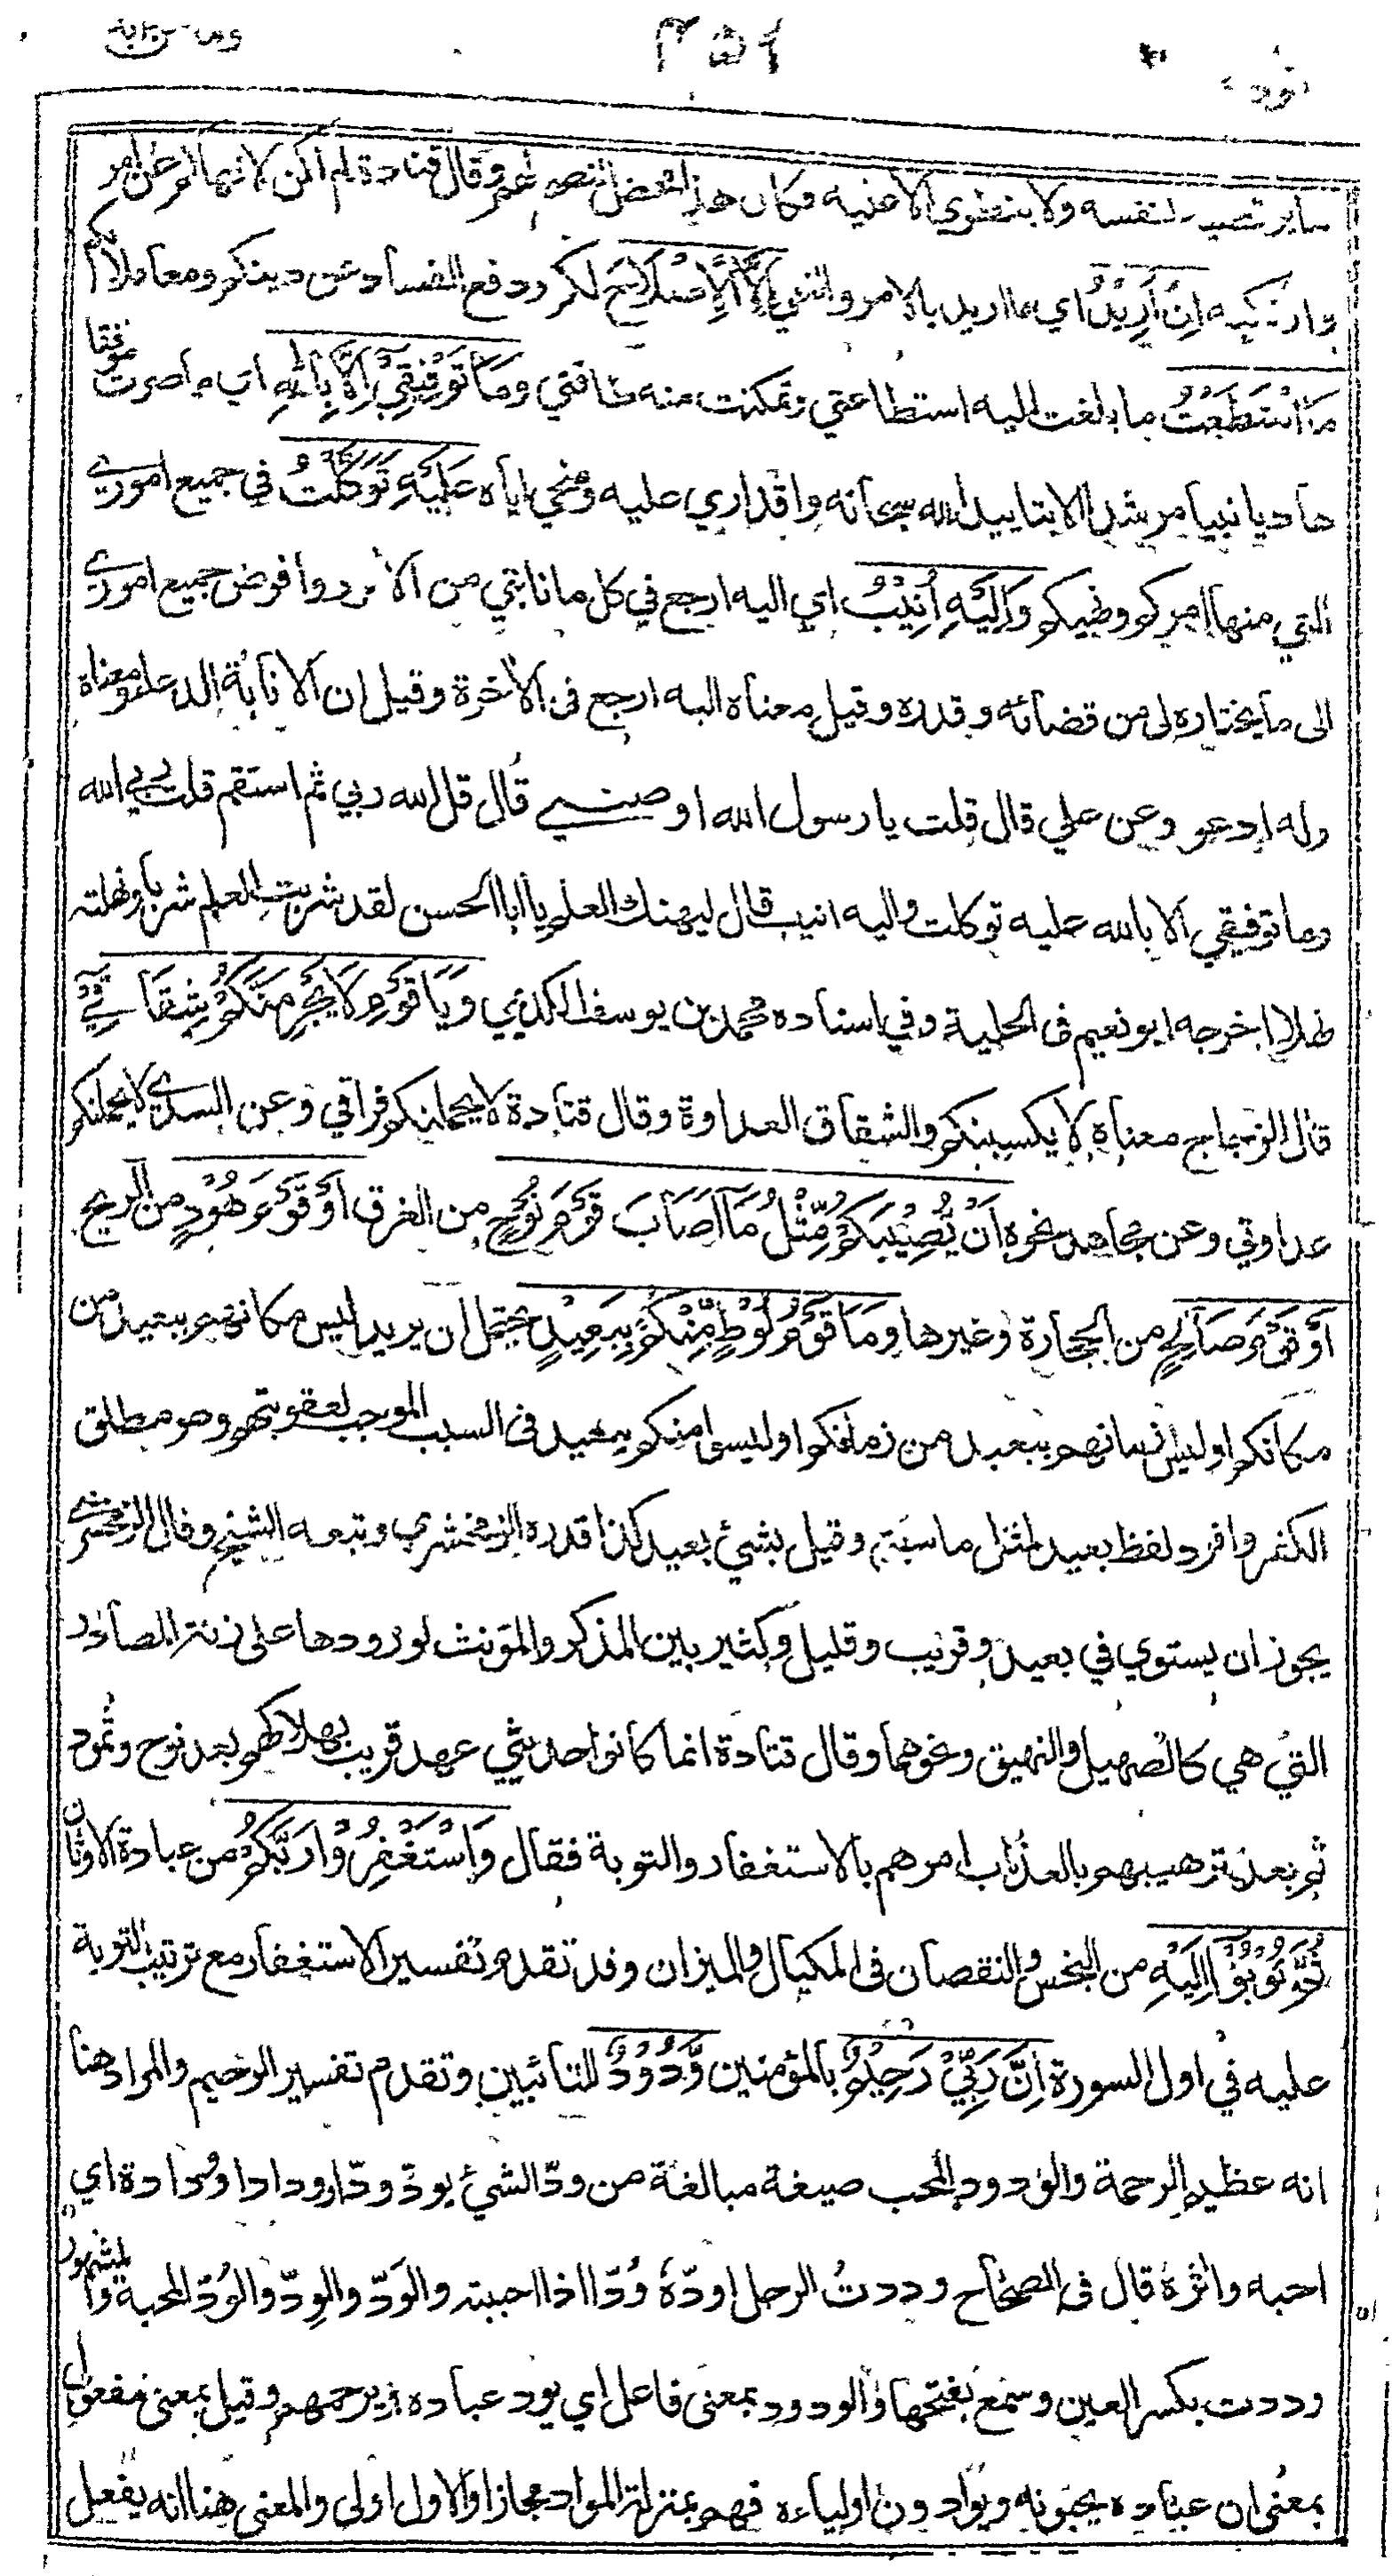 هود ٣٥١ وما من دابة
ما يرتضيه لنفسه ولا ينطوي الا عليه فكان هذا محض النصح لهم وقال قتادة لم اكن لانهاكم عن امر
وارتكبه اِنْ اُرِيْدُ اي ما اريد بالامر والنهي اِلَّا الْاِصْلَاحَ لكم ودفع الفساد عن دينكم ومعاملاتكم
مَا اسْتَطَعْتُ ما بلغت اليه استطاعتي وتمكنت منه طاقتي وَمَا تَوْفِيْقِيْ اِلَّا بِاللّٰهِ اي ما صرت موفقا
هاديا نبيا مرشدا الا بتاييد الله سبحانه واقداري عليه ومنحي اياه عَلَيْهِ تَوَكَّلْتُ في جميع اموري
التي منها امركم ونهيكم وَاِلَيْهِ اُنِيْبُ اي اليه ارجع في كل ما نابني من الامور وافوض جميع اموري
الى ما يختاره لي من قضائه وقدره وقيل معناه اليه ارجع في الاخرة وقيل ان الانابة الدعاء ومعناه
وله ادعو وعن علي قال قلت يا رسول الله اوصني قال قل الله ربي ثم استقم قلت ربي الله
وما توفيقي الا بالله عليه توكلت واليه انيب قال ليهنك العلم يا ابا الحسن لقد شربت العلم شربا ونهلته
نهلا اخرجه ابو نعيم في الحلية وفي اسناده محمد بن يوسف الكديمي وَيَا قَوْمِ لَا يَجْرِمَنَّكُمْ شِقَاقِيْ
قال الزجاج معناه لا يكسبنكم والشقاق العداوة وقال قتادة لا يحملنكم فراقي وعن السدي لا يحملنكم
عداوتي وعن مجاهد نحوه اَنْ يُّصِيْبَكُمْ مِّثْلُ مَا اَصَابَ قَوْمَ نُوْحٍ من الغرق اَوْ قَوْمَ هُوْدٍ من الريح
اَوْ قَوْمَ صَالِحٍ من الحجارة وغيرها وَمَا قَوْمُ لُوْطٍ مِّنْكُمْ بِبَعِيْدٍ يحتمل ان يريد ليس مكانهم ببعيد من
مكانكم او ليس زمانهم ببعيد من زمانكم او ليسوا منكم ببعيد في السبب الموجب لعقوبتهم وهو مطلق
الكفر وافرد لفظ بعيد لمثل ما سبق وقيل بشئ بعيد كذا قدره الزمخشري وتبعه الشيخ وقال الزمخشري
يجوز ان يستوي في بعيد وقريب وقليل وكثير بين المذكر والمؤنث لورودها على زنة المصادر
التي هي كالصهيل والنهيق ونحوهما وقال قتادة انما كانوا حديثي عهد قريب بهلاكهم بعد نوح وثمود
ثم بعد ترهيبهم بالعذاب امرهم بالاستغفار والتوبة فقال وَاسْتَغْفِرُوْا رَبَّكُمْ من عبادة الاوثان
ثُمَّ تُوْبُوْا اِلَيْهِ من البخس والنقصان في المكيال والميزان وقد تقدم تفسير الاستغفار مع ترتيب التوبة
عليه في اول السورة اِنَّ رَبِّيْ رَحِيْمٌ بالمؤمنين وَّدُوْدٌ للتائبين وتقدم تفسير الرحيم والمراد هنا
انه عظيم الرحمة والودود المحب صيغة مبالغة من ودّ الشئ يودّ ودّا وودادا وودادة اي
احبه واثره قال في الصحاح وددتُ الرجل اودّهٗ وُدّا اذا احببته والوَدّ والوِدّ والوُدّ المحبة والمشهور
وددت بكسر العين وسمع بفتحها والودود بمعنى فاعل اي يود عباده ويرحمهم وقيل بمعنى مفعول
بمعنى ان عباده يحبونه ويوادون اولياءه فهم بمنزلة المواد مجازا والاول اولى والمعنى هنا انه يفعل